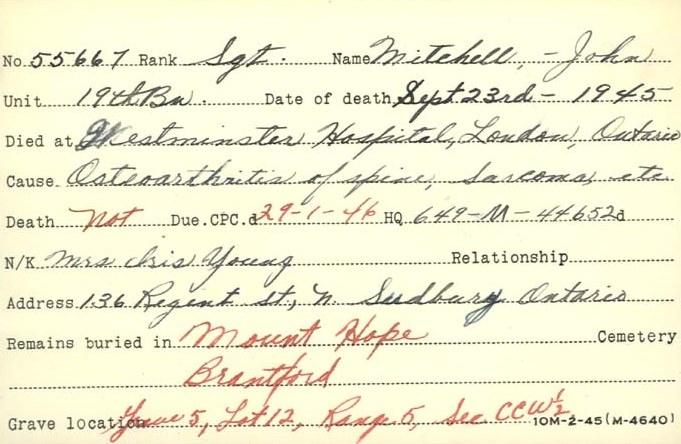 No. 55667 Rank Sgt. Name Mitchell, - John
Unit 19th Bn. Date of death Sept 23rd - 1945
Died at Westminster Hospital, London, Ontario
Cause Osteoarthritis of spine, sarcoma, etc
Death Not Due. CPC.d 29-1-46 HQ 649-M-44652d
N/K Mrs Iris Young Relationship
Address 136 Regent St., N Sudbury Ontario
Remains buried in Mount Hope Cemetery
Brantford
Grave location Grave 5, Lot 12, Range 5, Sec CCW½
10M-2-45 (M-4640)